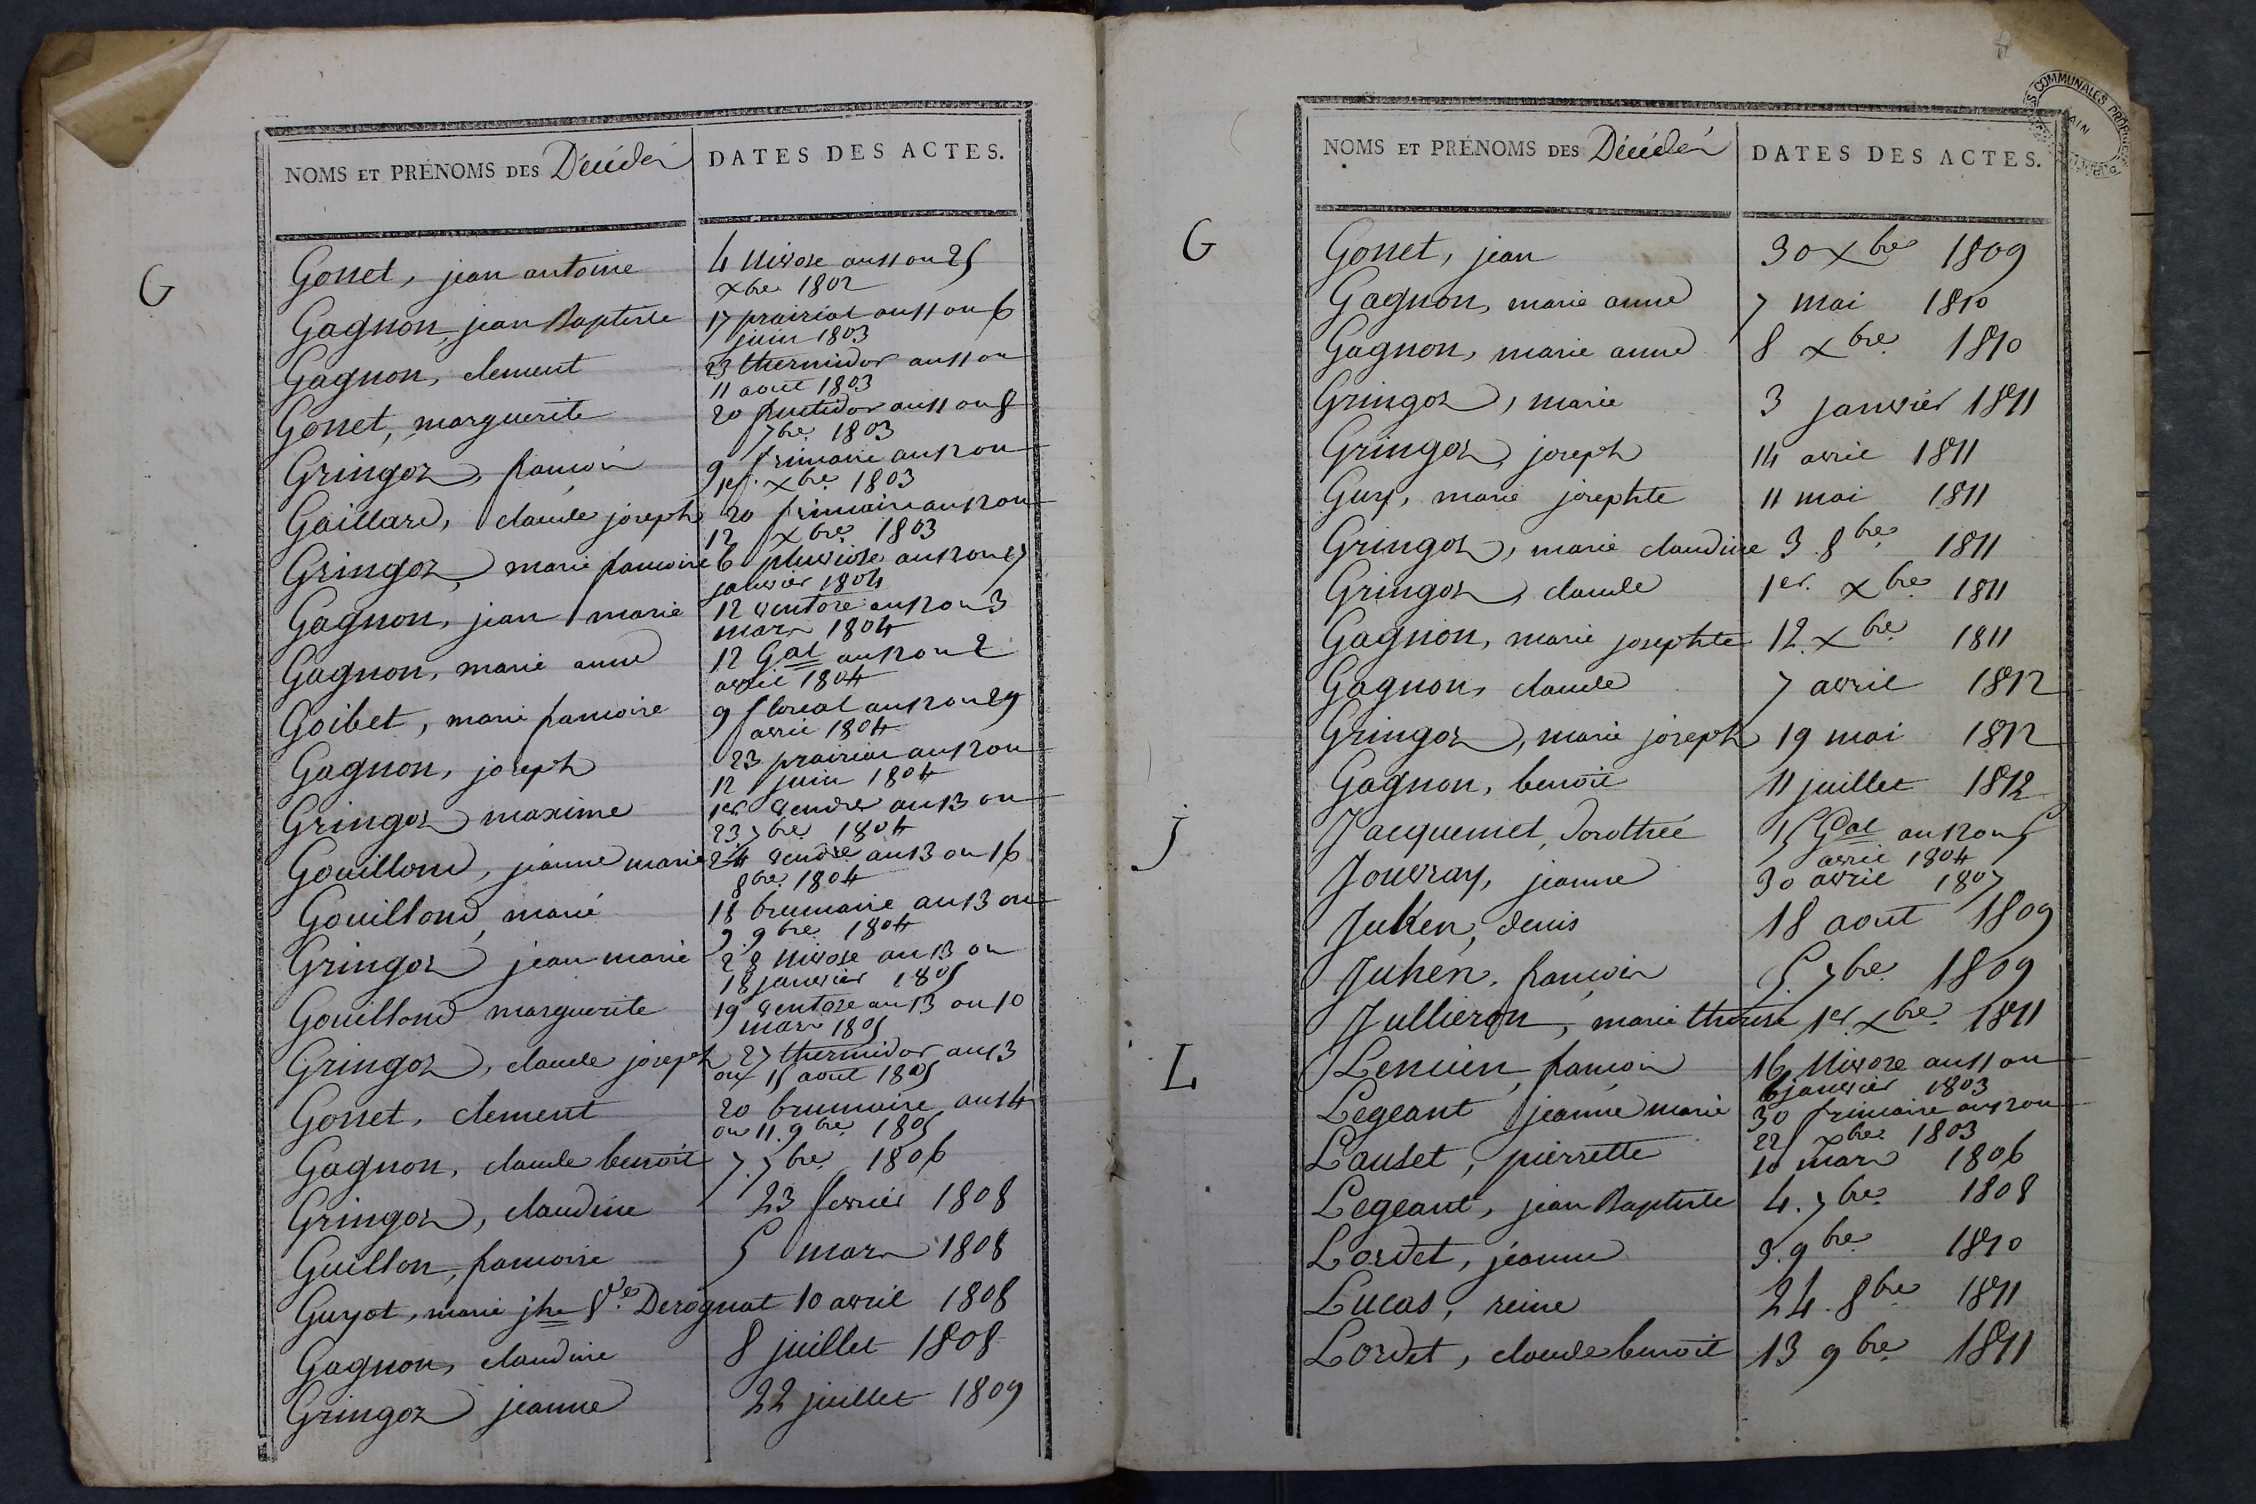 NOMS ET PRÉNOMS DES Décédés
DATES DES ACTES.
G
Gonet, jean antoine 4 Nivose an 11 ou 25
xbre 1802
Gagnon, jean Baptiste 17 prairial an 11 ou 6
juin 1803
Gagnon, clement 23 thermidor an 11 ou
11 aout 1803
Gonet, marguerite 20 fructidor an 11 ou 8
7bre 1803
Gringoz, francois 9 frimaire an 12 ou
1er. xbre 1803
Gaillard, claude joseph 20 frimaire an 12 ou
12 xbre 1803
Gringoz, marie francoise 6 pluviose an 12 ou 27
janvier 1804
Gagnon, jean marie 12 ventose an 12 ou 3
mars 1804
Gagnon, marie anne 12 Gal an 12 ou 2
avril 1804
Goibet, marie francoise 9 floreal an 12 ou 29
avril 1804
Gagnon, joseph 23 prairial an 12 ou
12 juin 1804
Gringoz maxime 1er vendre an 13 ou
23. 7bre 1804
Gouilloud, jeanne marie 24 vendre an 13 ou 16
8bre 1804
Gouilloud, marie 18 brumaire an 13 ou
9. 9bre 1804
Gringoz jean marie 28 Nivose an 13 ou
18 janvier 1805
Gouilloud marguerite 19 ventose an 13 ou 10
mars 1805
Gringoz, claude joseph 27 thermidor an 13
ou 15 aout 1805
Gonet, clement 20 brumaire an 14
ou 11. 9bre 1805
Gagnon, claude benoit 7. 7bre 1806
Gringoz, claudine 23 fevrier 1808
Guillon, francoise 5 mars 1808
Guyot, marie jhe Derognat 10 avril 1808
Gagnon, claudine 8 juillet 1808
Gringoz jeanne 22 juillet 1809
NOMS ET PRÉNOMS DES Décédés
DATES DES ACTES.
G
Gonet, jean 30 xbre 1809
Gagnon, marie anne 7 mai 1810
Gagnon, marie anne 8 xbre 1810
Gringoz, marie 3 janvier 1811
Gringoz, joseph 14 avril 1811
Guy, marie josephte 11 mai 1811
Gringoz, marie claudine 3. 8bre 1811
Gringoz, claude 1er. xbre 1811
Gagnon, marie josephte 12. xbre 1811
Gagnon, claude 7 avril 1812
Gringoz, marie joseph 19 mai 1812
Gagnon, benoit 11 juillet 1812
j
Jacquemet, Dorothée 15 Gal an 12 ou 5
avril 1804
Jouvray, jeanne 30 avril 1807
Juhen, denis 18 aout 1809
Juhen, francois 5. 7bre 1809
Jullieron, marie therese 1er. xbre 1811
L
francois 16 Nivose an 11 ou
6 janvier 1803
Legeant jeanne marie 30 frimaire an 12 ou
22 xbre 1803
Laudet, pierrette 10 mars 1806
Legeant, jean Baptiste 4. 7bre 1808
Lordet, jeanne 3. 9bre 1810
Lucas, reine 24. 8bre 1811
Lordet, claude benoit 13 9bre 1811
COMMUNALES
AIN